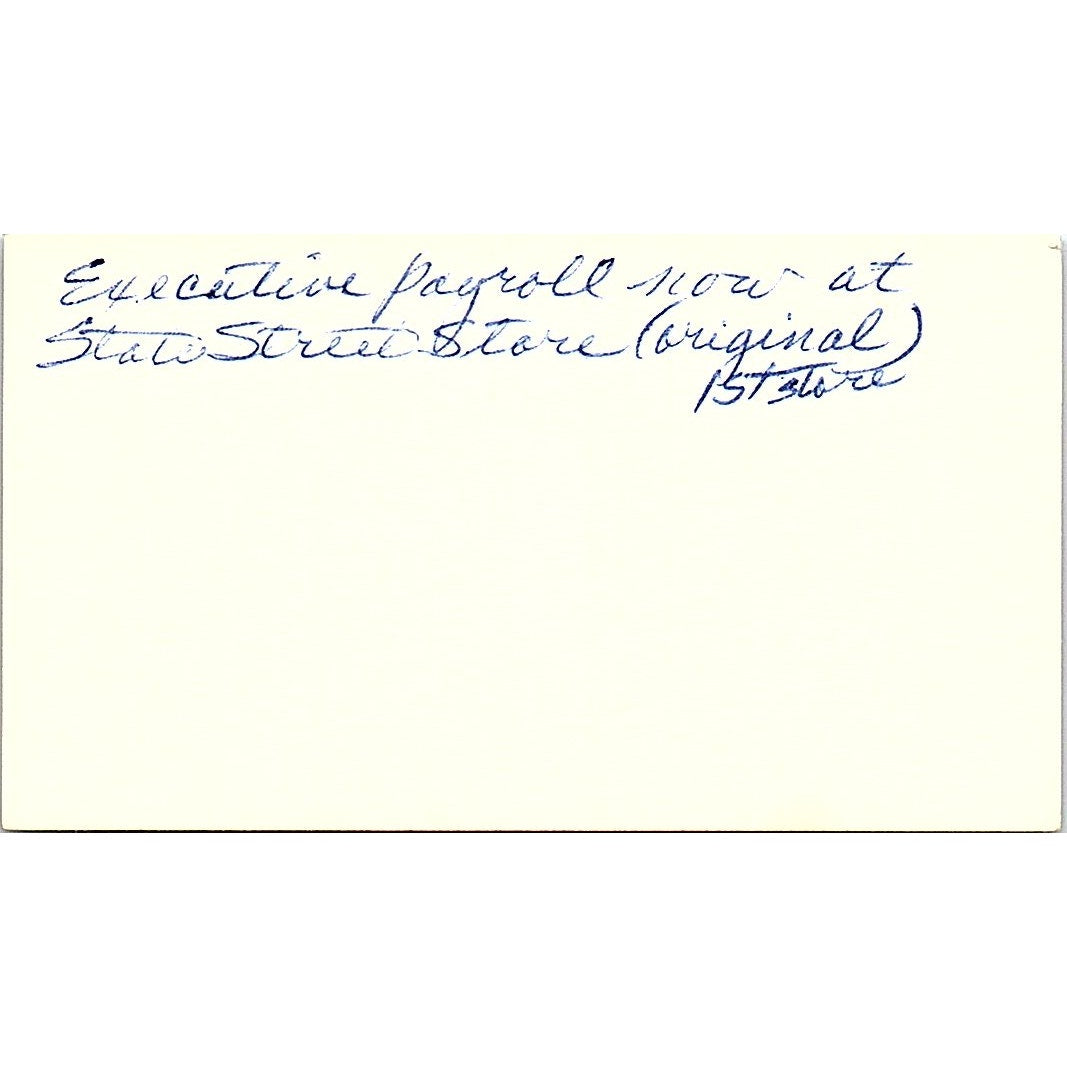 Executive payroll now at
State Street Store (original)
1st store